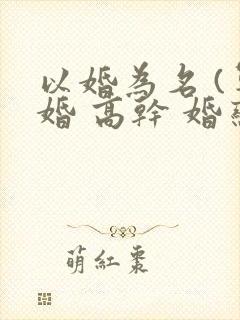 以婚為名(
婚 高幹 婚
萌紅棗